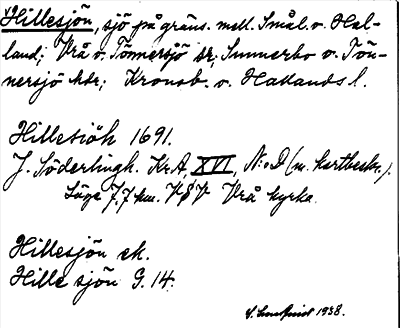 Hillesjön, sjö på gräns. mell. Smål. o. Hal-
land; Vrå o. Tönnersjö sr, Sunnerbo o. Tön-
nersjö hdr; Kronob. o. Hallands l.
Hillesiöh 1691.
J. Söderlingh. Kr.A, XVI, N:o D (m. kartbeskr.).
Läge 7,7 km. VSV Vrå kyrka.
Hillesjön ek.
Hillesjön G. 14.
1938.